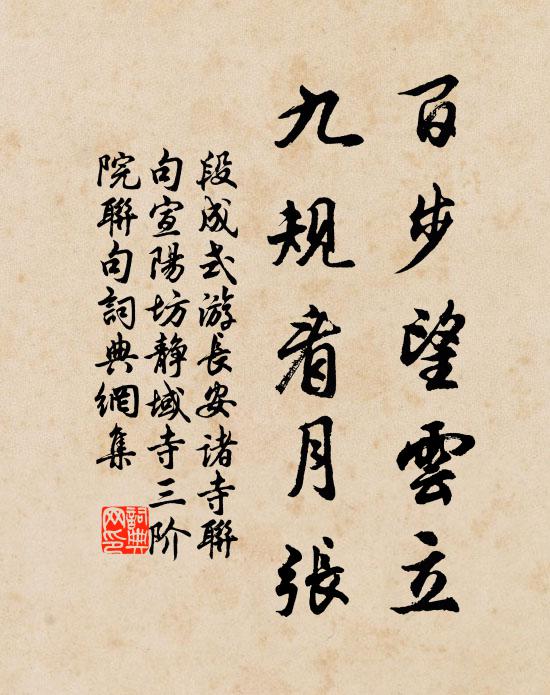 百步望雲立
九規看月張
段成式游長安諸寺聯
句宣陽坊靜域寺三阶
院聯句詞典網集
詞典
网印